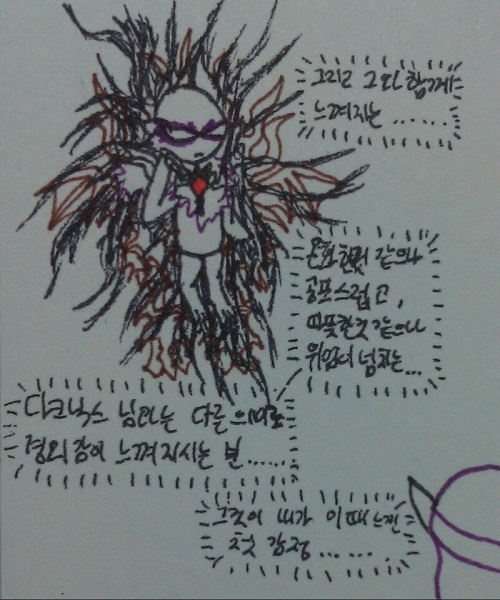 그리고 그와 함께
느껴지는 ......
온화한것 같으나
공포스럽고,
따뜻한것 같으나
위엄이 넘치는...
다크닉스 님과는 다른 의미로
경외감이 느껴지시는 분......
그것이 내가 이때 느낀
첫 감정......